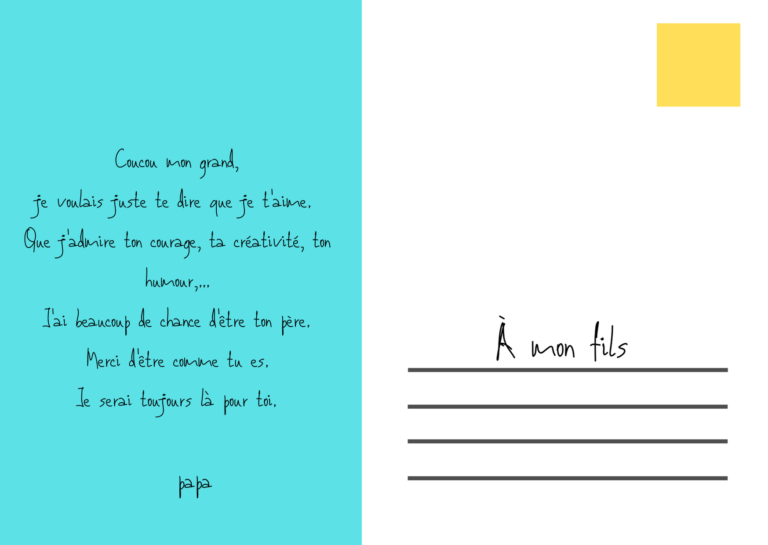 Coucou mon grand,
je voulais juste te dire que je t'aime.
Que j'admire ton courage, ta créativité, ton
humour,...
J'ai beaucoup de chance d'être ton père.
Merci d'être comme tu es.
Je serai toujours là pour toi.
papa
À mon fils